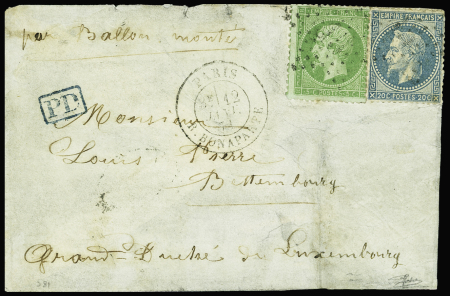 par Ballon monté
EMPIRE FRANÇAIS
20C POSTES 20C
PARIS
12
R. BONAPARTE
PD
Monsieur
Louis Pierre
Bettembourg
Grand-Duché de Luxembourg